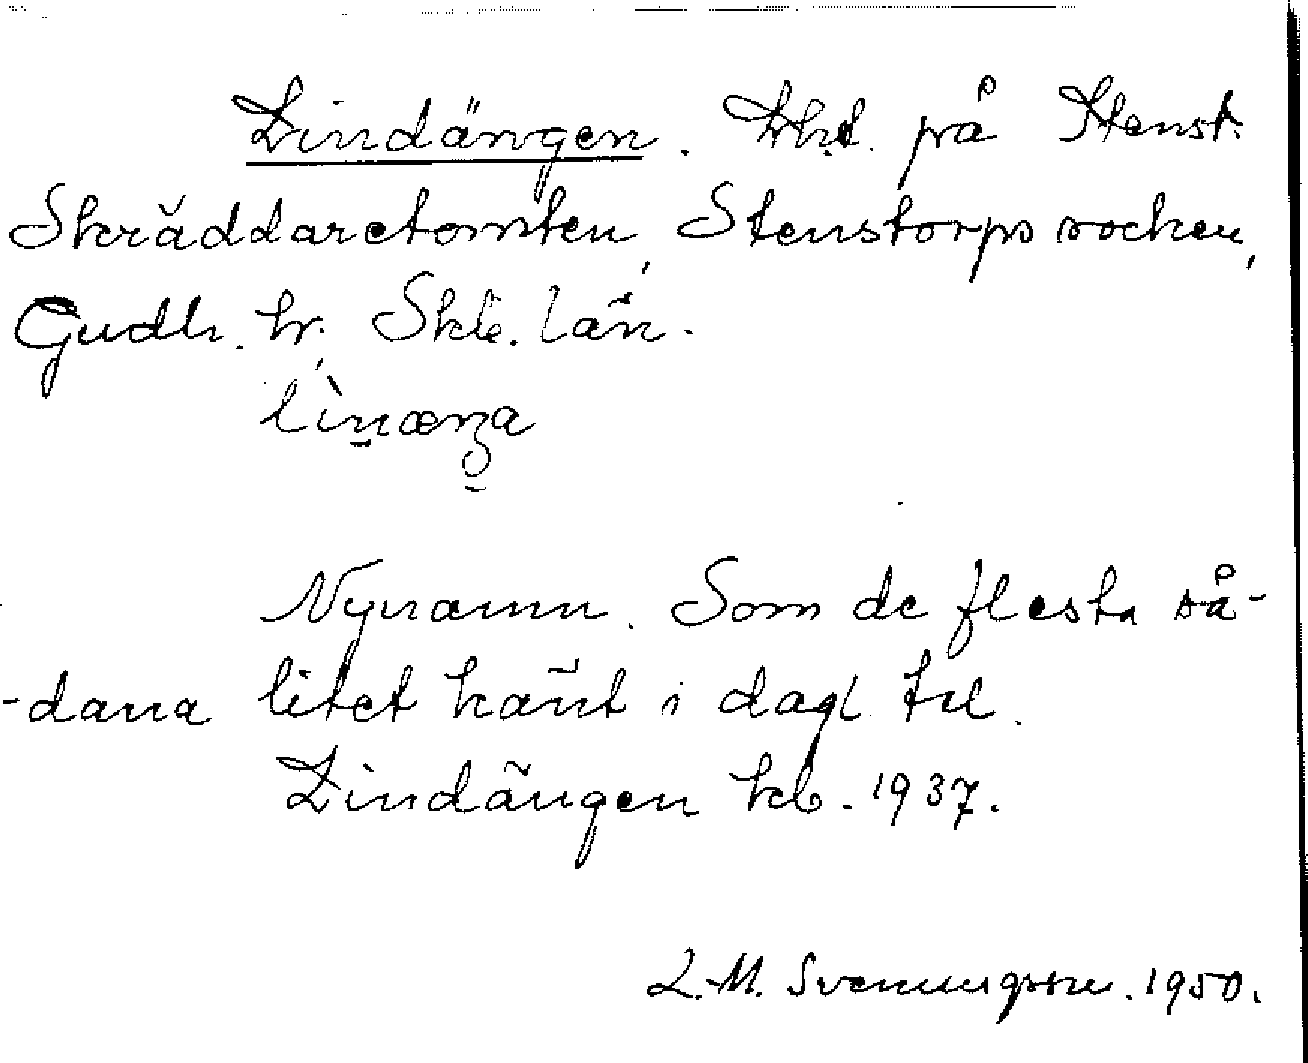 Lindängen. Lht. på Stenst.
Skräddaretomten, Stenstorps socken,
Gudh. hr. Skb. län.
Nynamn. Som de flesta så-
-dana litet känt i dagl. tal.
Lindängen kb. 1937.
L.-M. Svenungsson. 1950.